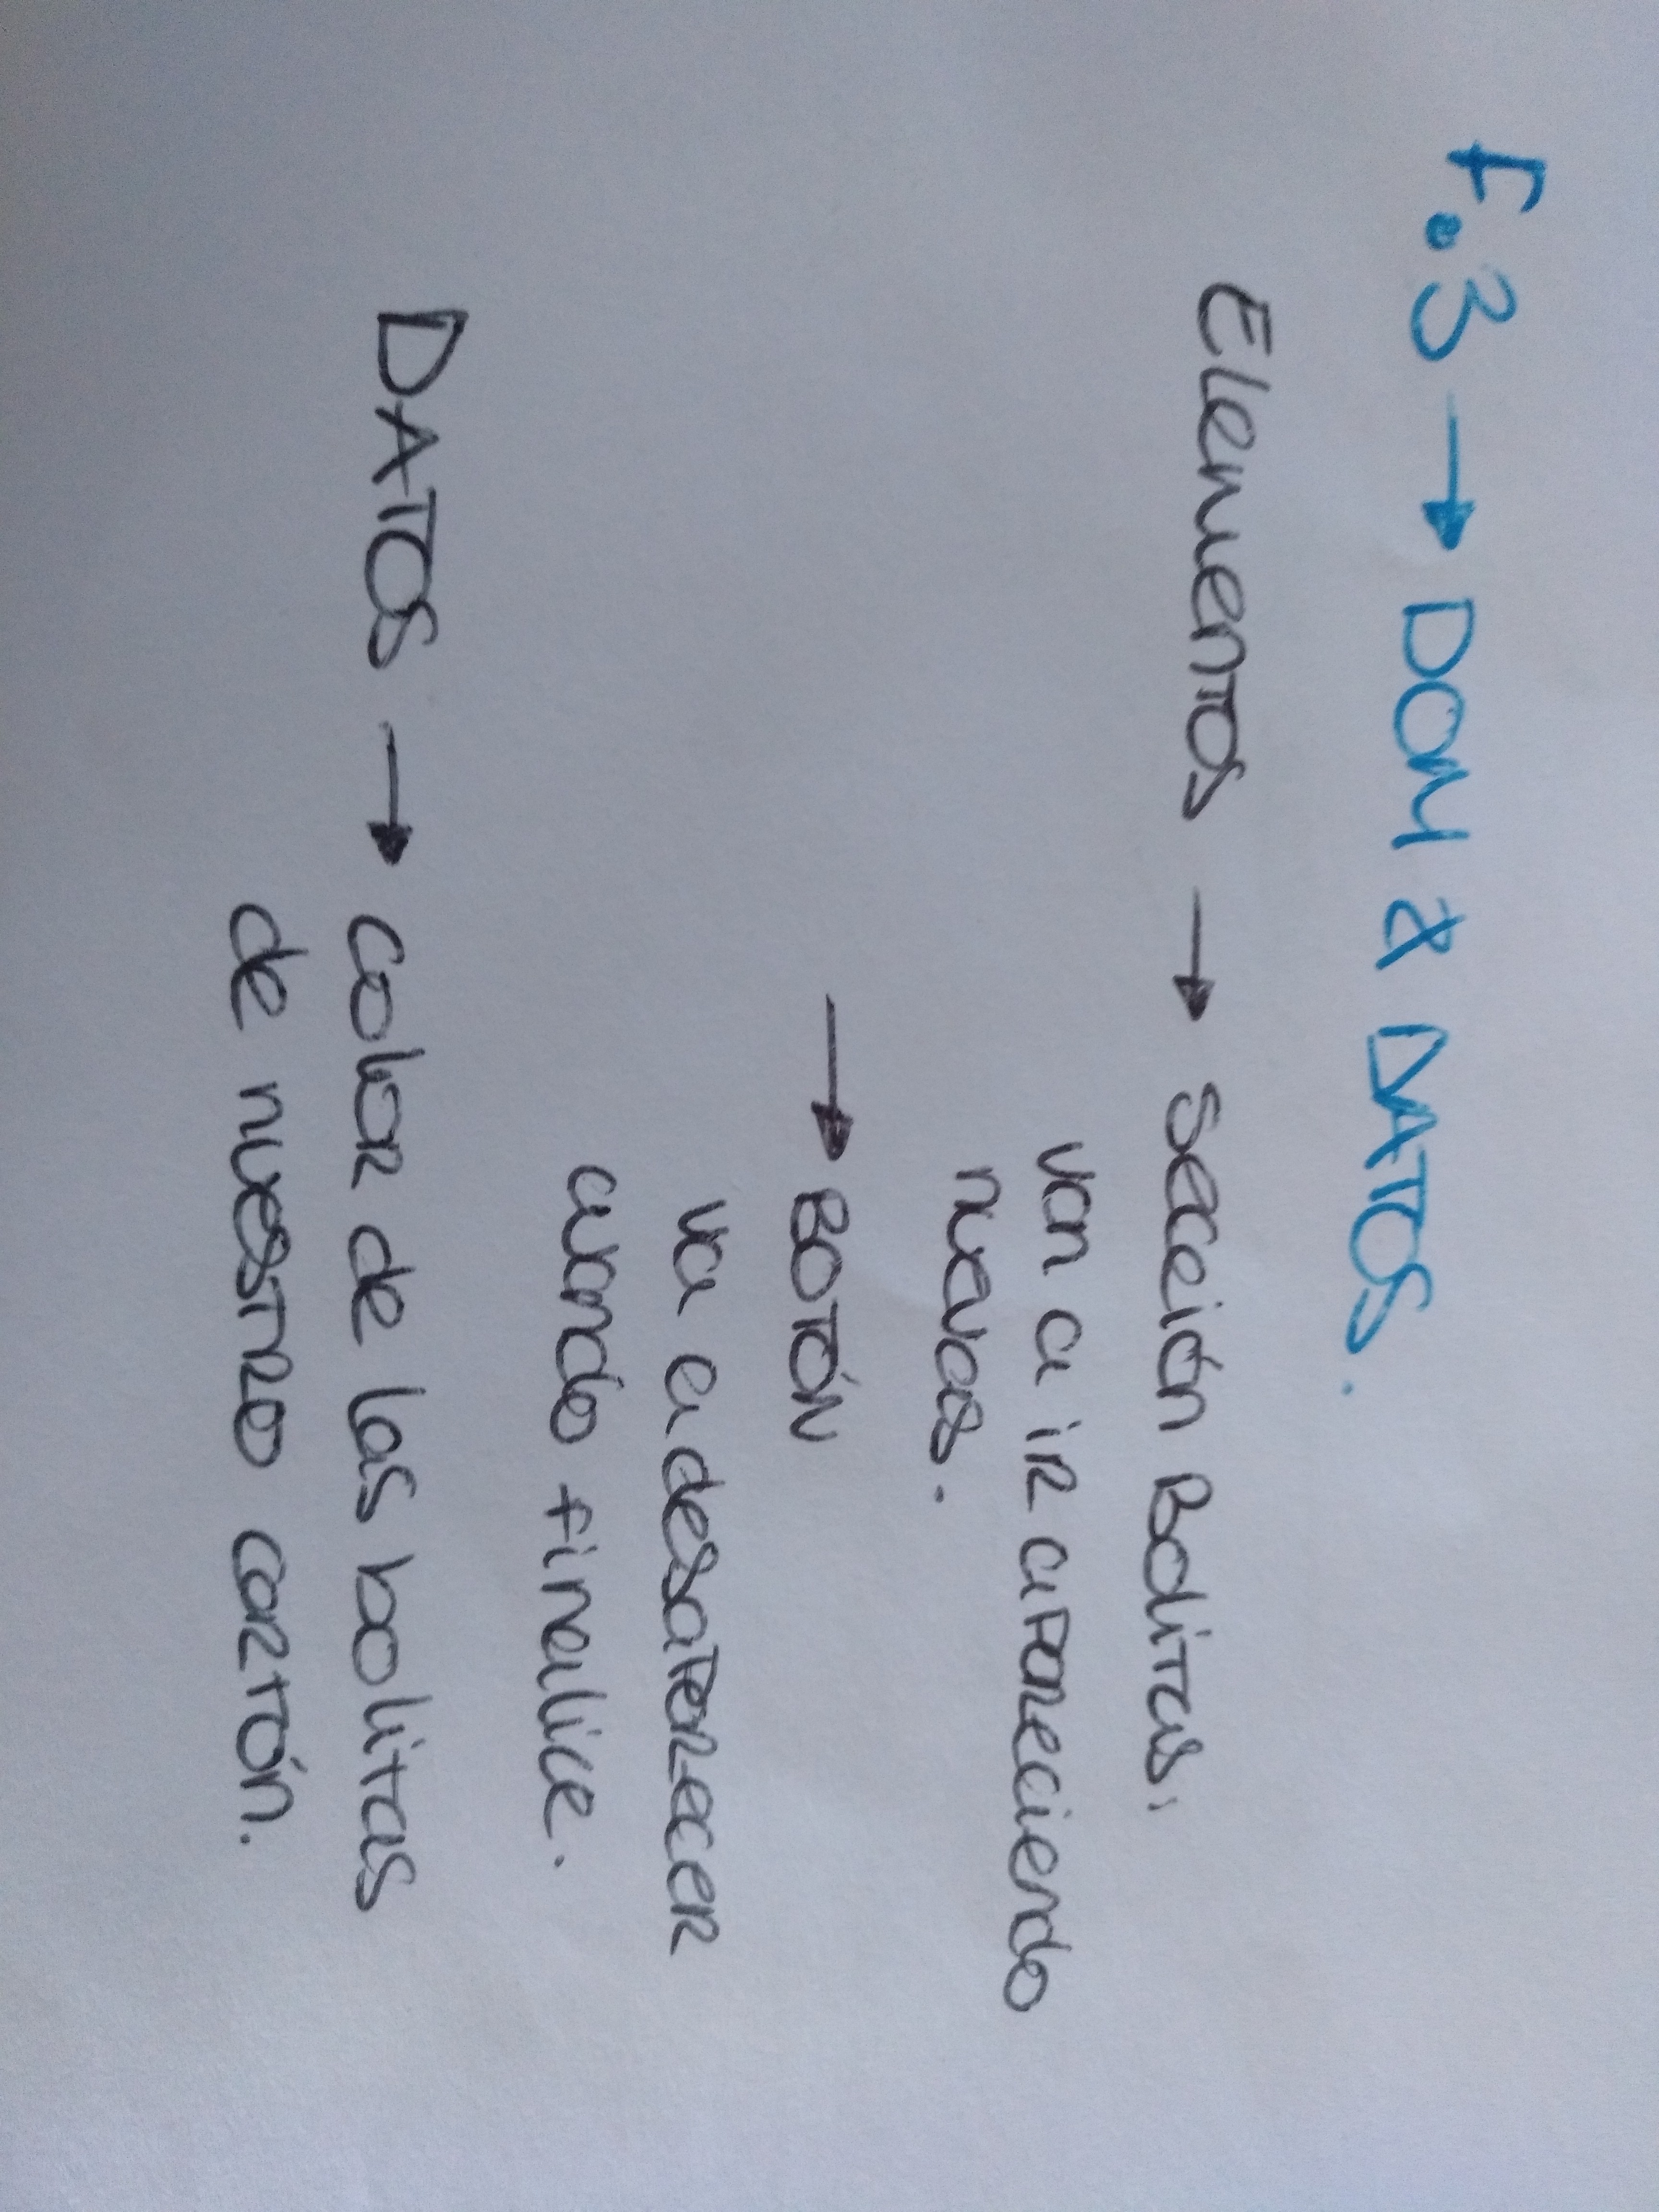 F.3 → DOM & DATOS.
Elementos → sección Bolitas,
van a ir apareciendo
nuevas.
→ BOTÓN
va a desaparecer
cuando finalice.
DATOS → color de las bolitas
de nuestro cartón.